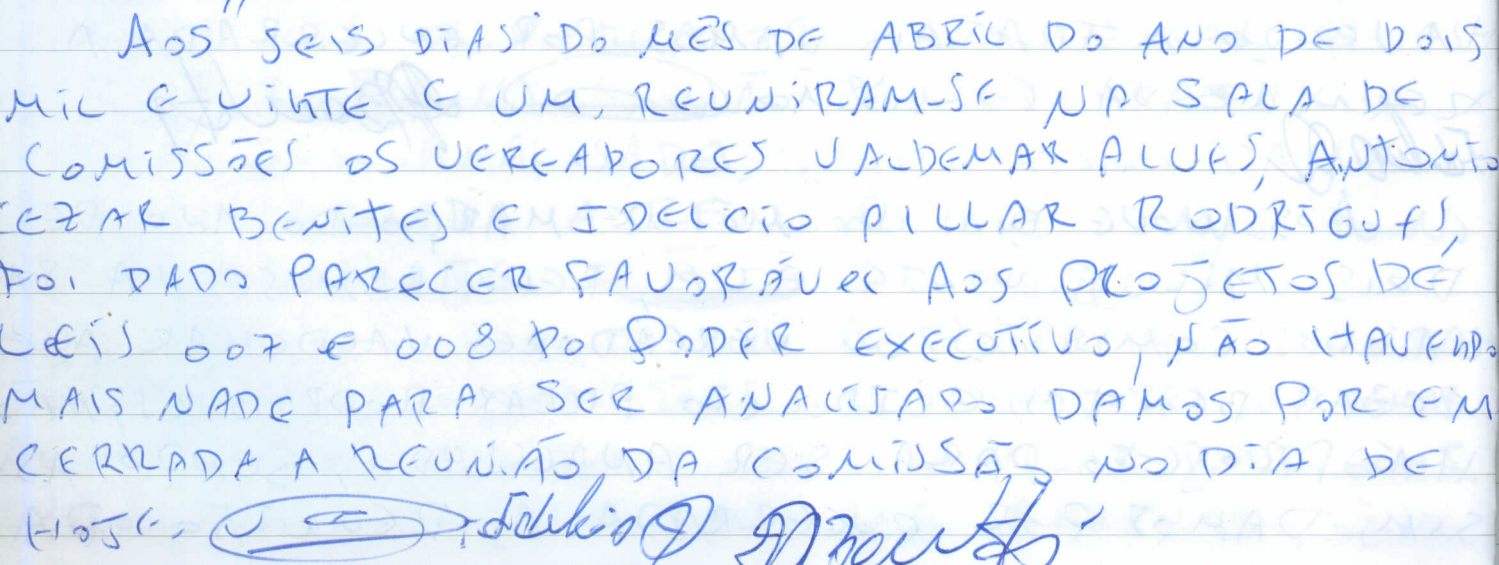 AOS SEIS DIAS DO MÊS DE ABRIL DO ANO DE DOIS
MIL E VINTE E UM, REUNIRAM-SE NA SALA DE
COMISSÕES OS VEREADORES VALDEMAR ALVES, ANTONIO
CEZAR BENITES E IDELCIO PILLAR RODRIGUES,
FOI DADO PARECER FAVORÁVEL AOS PROJETOS DE
LEIS 007 E 008 DO PODER EXECUTIVO, NÃO HAVENDO
MAIS NADE PARA SER ANALISADO DAMOS POR EM
CERRADA A REUNIÃO DA COMISSÃO NO DIA DE
HOJE.